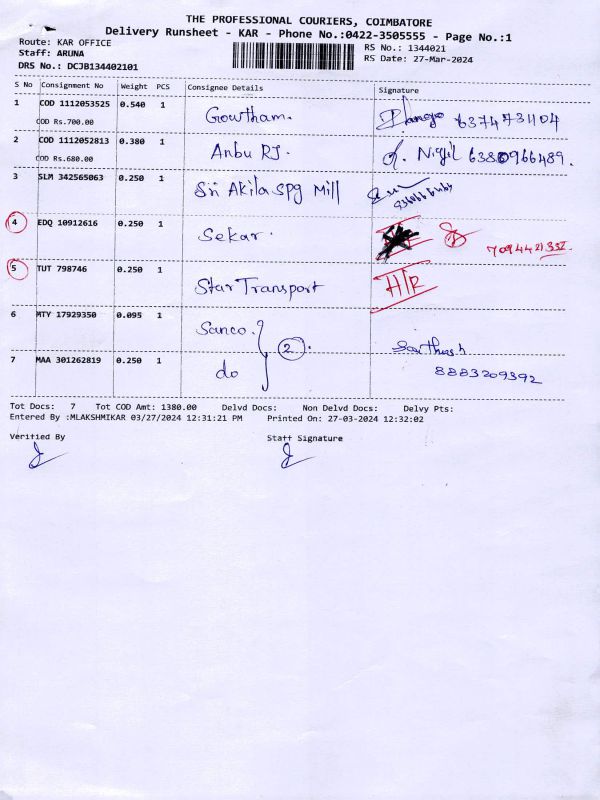 THE PROFESSIONAL COURIERS, COIMBATORE
Delivery Runsheet - KAR - Phone No.:0422-3505555 - Page No.:1
Route: KAR OFFICE
RS No.: 1344021
Staff: ARUNA
RS Date: 27-Mar-2024
DRS No.: DCJB134402101
S No Consignment No Weight PCS Consignee Details Signature
1 COD 1112053525 0.540 1 Gowtham. 6374731104
COD Rs.700.00
2 COD 1112052813 0.380 1 Anbu RJ. Nigil 6380966489.
COD Rs.680.00
3 SLM 342565063 0.250 1 Sri Akila Spg Mill
4 EDQ 10912616 0.250 1 Sekar. 7094421332
5 TUT 798746 0.250 1 Star Transport H/R
6 MTY 17929350 0.095 1 Sanco. 2.
7 MAA 301262819 0.250 1 do 8883209392
Tot Docs: 7 Tot COD Amt: 1380.00 Delvd Docs: Non Delvd Docs: Delvy Pts:
Entered By :MLAKSHMIKAR 03/27/2024 12:31:21 PM Printed On: 27-03-2024 12:32:02
Verified By Staff Signature